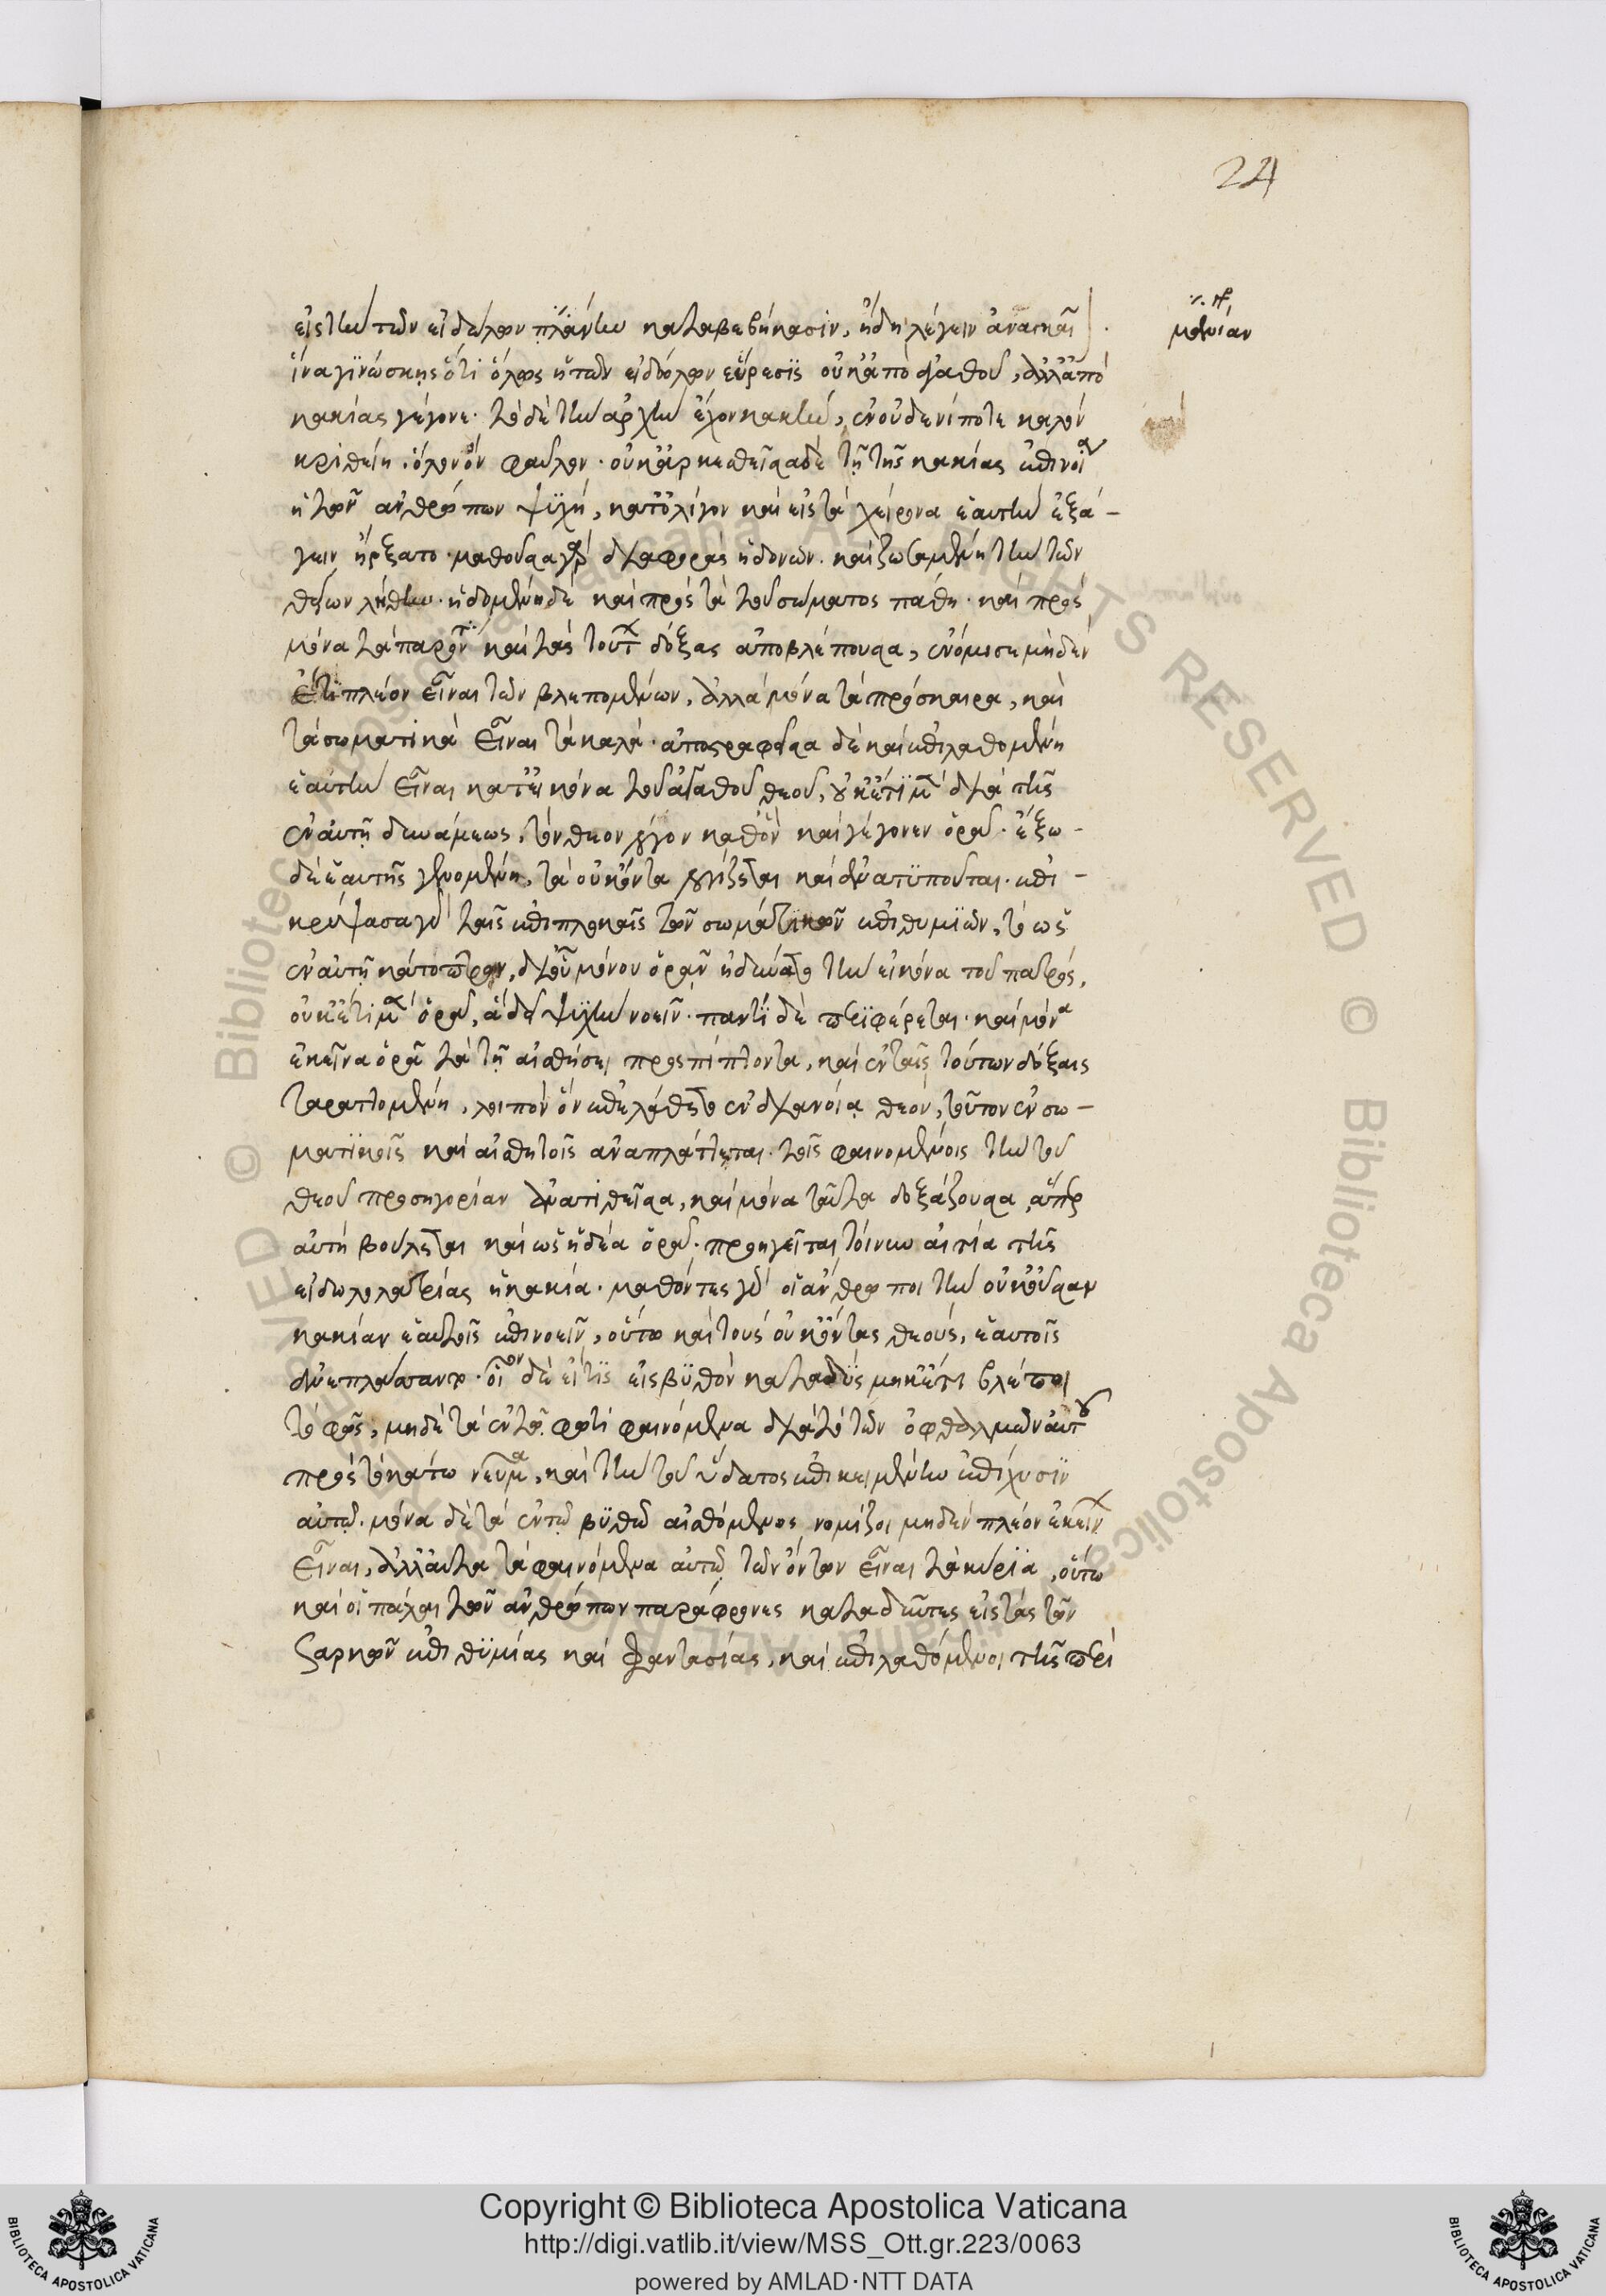 24
εἰς τὴν τῶν εἰδώλων πλάνην καταβεβήκασιν, ἤδη λέγειν ἀναγκαῖ
·/. γρ.
μανίαν
ἵνα γινώσκης ὅτι ὅλως ἡ τῶν εἰδώλων εὕρεσϊς οὐκ ἀπὸ ἀγαθοῦ, ἀλλ' ἀπὸ
κακίας γέγονε· τὸ δὲ τὴν ἀρχὴν ἔχον κακὴν, ἐν οὐδενί ποτε καλὸν
κριθείη· ὅλον ὂν φαῦλον· οὐκ ἀρκεσθεῖσα δὲ τῆ τῆς κακίας ἐπινοία
ἡ τῶν ἀνθρώπων ψϋχή, κατ' ὀλίγον καὶ εἰς τὰ χείρονα ἑαυτὴν ἐξά-
γειν ἤρξατο· μαθοῦσα γὰρ διαφορὰς ἡδονῶν· καὶ ζωσαμένη τὴν τῶν
θείων λήθην· ἡδομένη δὲ καὶ πρὸς τὰ τοῦ σώματος πάθη· καὶ πρὸς
μόνα τὰ παρόντα καὶ τὰς τούτων δόξας ἀποβλέπουσα, ἐνόμισε μηδὲν
ἔτϊ πλέον εἶναι τῶν βλεπομένων, ἀλλὰ μόνα τὰ πρόσκαιρα, καὶ
τὰ σωματικὰ εἶναι τὰ καλά· ἀποστραφεῖσα δὲ καὶ ἐπιλαθομένη
ἑαυτὴν εἶναι κατ' εἰκόνα τοῦ ἀγαθοῦ θεοῦ, οὐκέτϊ μὲν διὰ τῆς
ἐν αὐτῆ δυνάμεως, τὸν θεὸν λόγον καθ' ὃν καὶ γέγονεν ὁρᾶ· ἔξω-
δὲ ἑαυτῆς γενομένη, τὰ οὐκ ὄντα λογίζεται καὶ ἀνατϋποῦται· ἐπι-
κρύψασα γὰρ ταῖς ἐπιπλοκαῖς τῶν σωματϊκῶν ἐπιθυμϊῶν, τὸ ὡς
ἐν αὐτῆ κάτοπτρον, δι' οὗ μόνον ὁρᾶν ἠδύνατο τὴν εἰκόνα τοῦ πατρός,
οὐκέτι μὲν ὁρᾶ, ἃ δεῖ ψϋχὴν νοεῖν· παντϊ δὲ περϊφέρεται· καὶ μόνα
ἐκεῖνα ὁρᾶ τὰ τῆ αἰσθήσει προσπίπτοντα, καὶ ἐν ταῖς τούτων δόξαις
ταραττομένη, λοιπὸν ὃν ἐπελάθετο ἐν διανοία θεὸν, τοῦτον ἐν σω-
ματϊκοῖς καὶ αἰσθητοῖς ἀναπλάττεται· τοῖς φαινομένοις τὴν τοῦ
θεοῦ προσηγορίαν ἀνατιθεῖσα, καὶ μόνα ταῦτα δοξάζουσα, ἅπερ
αὐτὴ βούλεται καὶ ὡς ἡδέα ὁρᾶ· προηγεῖται τοίνυν αἰτία τῆς
εἰδωλολατρίας ἡ κακία· μαθόντες γὰρ οἱ ἄνθρωποι τὴν οὐκ οὖσαν
κακίαν ἑαυτοῖς ἐπινοεῖν, οὕτω καὶ τοὺς οὐκ ὄντας θεούς, ἑαυτοῖς
ἀνεπλάσαντο· οἷον δὲ εἴ τϊς εἰς βϋθὸν καταδϋς μηκέτι βλέποι
τὸ φῶς, μηδὲ τὰ ἐν τῷ φωτὶ φαινόμενα διὰ τὸ τῶν ὀφθαλμῶν αὐτοῦ
πρὸς τὸ κάτω νεῦμα, καὶ τὴν τοῦ ὕδατος ἐπικειμένην ἐπίχυσϊν
αὐτῷ· μόνα δὲ τὰ ἐν τῷ βϋθῷ αἰσθόμενος νομίζοι μηδὲν πλέον ἐκείνων
εἶναι, ἀλλ' αὐτὰ τὰ φαινόμενα αὐτῷ τῶν ὄντων εἶναι τὰ κυρϊα, οὕτω
καὶ οἱ πάλαι τῶν ἀνθρώπων παράφρονες καταδύντες εἰς τὰς τῶν
σαρκῶν ἐπιθϋμίας καὶ φαντασίας, καὶ ἐπιλαθόμενοι τῆς περὶ
Copyright © Biblioteca Apostolica Vaticana
http://digi.vatlib.it/view/MSS_Ott.gr.223/0063
powered by AMLAD·NTT DATA